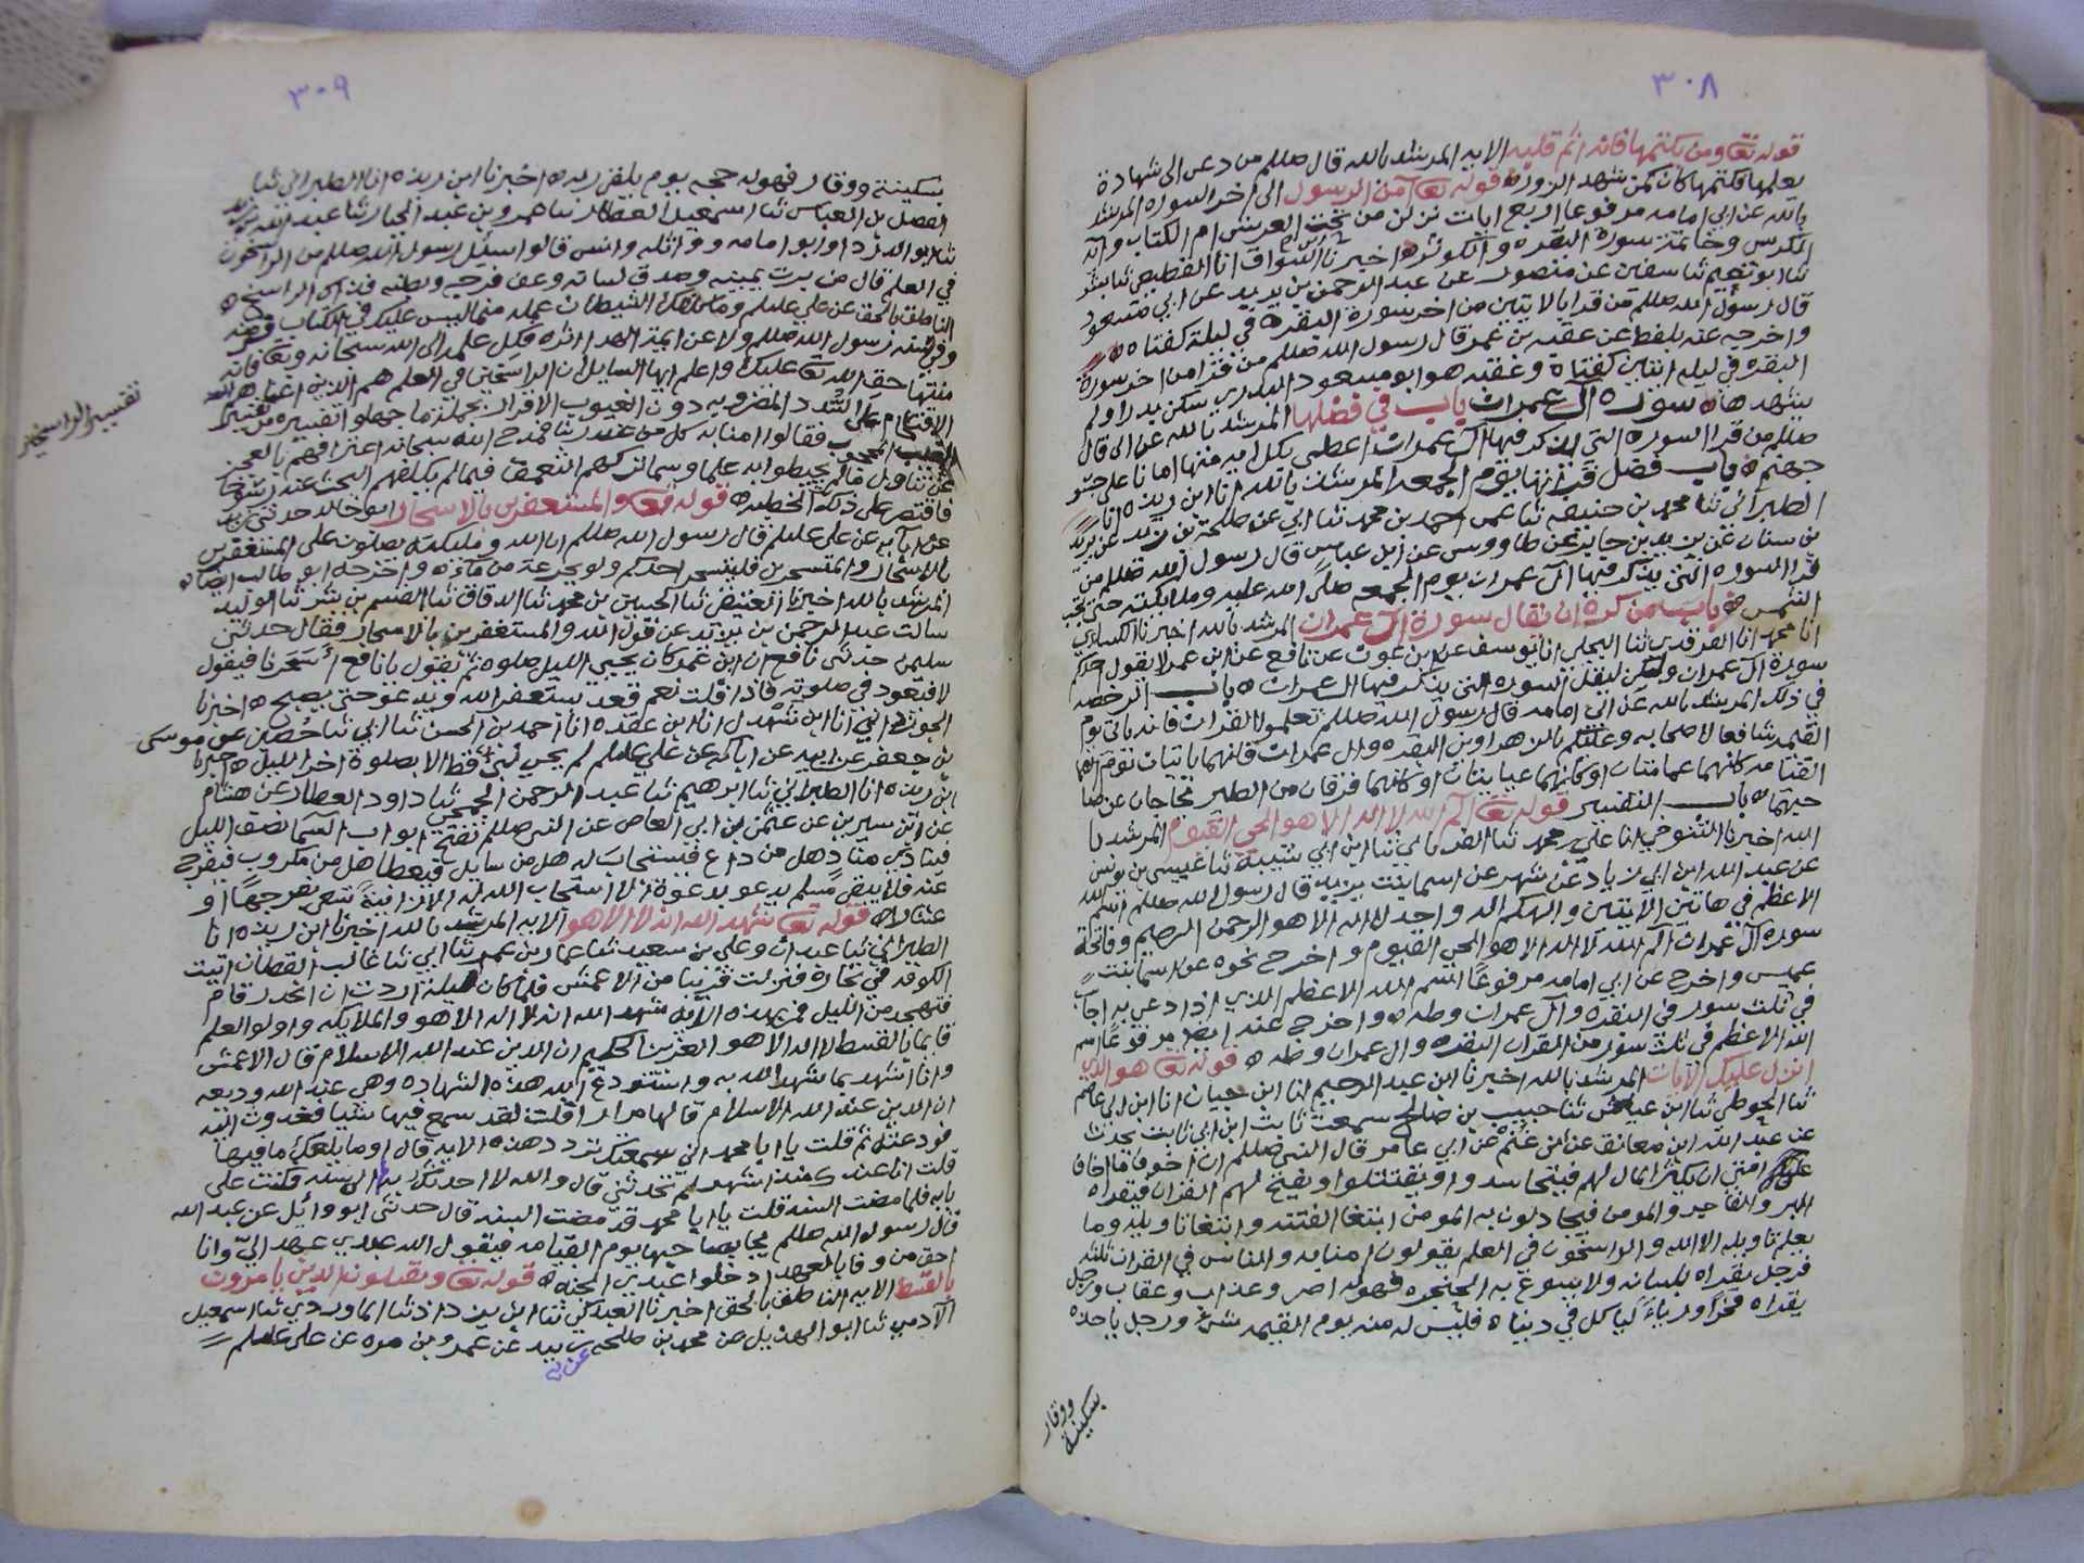 ٣٠٨
قوله تعا ومن يكتمها فانه اثم قلبه الايه المرشد بالله قال صللم من دعى الى شهادة
يعلمها فكتمها كان كمن شهد الزوره قوله تعا آمن الرسول الى اخر السوره المرشد
بالله عن ابي امامه مرفوعا اربع ايات نزلن من تحت العرش ام الكتاب وآية
الكرسي وخاتمة سورة البقره والكوثر ه اخبرنا ابن السواق انا القطيعي ثنا بشر
ثنا ابو نعيم ثنا سفين عن منصور عن عبد الرحمن بن يزيد عن ابي مسعود
قال رسول الله صللم من قرا بالايتين من اخر سورة البقره في ليلة كفتاه ه
واخرجه عنه بلفظ عن عقبه بن عمر قال رسول الله صللم من قرا من اخر سورة
البقره في ليله اثنتين كفتاه وعقبه هو ابو مسعود البدري سكن بدرا ولم
يشهدها ه سورة آل عمران باب في فضلها المرشد بالله عن ابي قال
صللم من قرا السوره التي يذكر فيها آل عمران اعطي بكل ايه منها امانا على جسر
جهنم ه باب فضل قراتها يوم الجمعه المرشد بالله انا ابن ريذه انا
الطبراني ثنا محمد بن حنيفه ثنا عمي احمد بن محمد ثنا ابي عن طلحة بن زيد عن يزيد
بن سنان عن يزيد بن جابر عن طاووس عن ابن عباس قال رسول الله صللم من
قرا السوره التي يذكر فيها آل عمران يوم الجمعه صلى الله عليه وملايكته حتى تجب
الشمس ه باب من كره ان يقال سورة آل عمران المرشد بالله اخبرنا
انا محمد انا الفرقدي ثنا البجلي انا يوسف عن ابن عون عن نافع عن ابن عمر لا يقول احدكم
سورة آل عمران ولكن ليقل السوره التي يذكر فيها آل عمران ه باب الرخصه
في ذلك المرشد بالله عن ابي امامه قال رسول الله صللم تعلموا القران فانه ياتي يوم
القيمه شافعا لاصحابه وعليكم بالزهراوين البقره وال عمران فانهما ياتيان يوم
القيامه كانهما غمامتان او كانهما غيايتان او كانهما فرقان من الطير يحاجان عن صا
حبهما ه باب التفسير قوله تعا آلم الله لا اله الا هو الحي القيوم المرشد با
الله اخبرنا التنوخي انا علي بن محمد ثنا الفريابي ثنا ابن ابي شيبة ثنا عيسى بن يونس
عن عبد الله ابن ابي زياد عن شهر عن اسما بنت يزيد قال رسول الله صللم اسم الله
الاعظم في هاتين الايتين والهكم اله واحد لا اله الا هو الرحمن الرحيم وفاتحة
سورة آل عمران الم الله لا اله الا هو الحي القيوم واخرج نحوه عن اسما بنت
عميس واخرج عن ابي امامه مرفوعًا اسم الله الاعظم الذي اذا دعي به اجاب
في ثلث سور في البقره وآل عمران وطه ه واخرج عنه ايضا مرفوعًا اسم
الله الاعظم في ثلث سور من القران البقره وال عمران وطه ه قوله تعا هو الذي
انزل عليك الآيات المرشد بالله اخبرنا ابن عبد الرحيم انا ابن حيان انا ابن ابي عاصم
ثنا الحوطي ثنا ابن عياش ثنا حبيب بن صالح سمعت ثابت ابن ابي ثابت يحدث
عن عبد الله ابن معانق عن ابن غنم عن ابي عامر قال النبي صللم ان اخوف ما اخاف
على امتي ان يكثر المال لهم فيتحاسدوا ويقتتلوا ويفتح لهم القران فيقراه
البر والفاجر والمومن فيجادلون به المومن ابتغا الفتنه وابتغا تاويله وما
يعلم تاويله الا الله والراسخون في العلم يقولون امنا به والناس في القران ثلثه
فرجل يقراه بلسانه ولا يسوغ به الحنجره فهو له اصر وعذاب وعقاب ورجل
يقراه فخرًا ورياءً ليا كل في دنياه فليس له منه يوم القيمه شي ورجل ياخذه
بسكينة
ووقار
٣٠٩
بسكينة ووقار فهو له حجه يوم يلقى ربه ه اخبرنا ابن ريذه انا الطبراني ثنا
الفضل بن العباس ثنا اسمعيل العطار ثنا عمرو بن عبد الجبار ثنا عبد الله بن يزيد
ثنا ابو الدردا وابو امامه وواثله وانس قالوا سيل رسول الله صللم من الراسخون
في العلم قال من برت يمينه وصدق لسانه وعف فرجه وبطنه فذاك الراسخ ه
الناطق بالحق عن علي عليلم وما كلفك الشيطان علمه مما ليس عليك في الكتاب فرضه
وفي سنة رسول الله صللم ولا عن ايمة الهدا اثره فكل علمه الى الله سبحانه وتعا فانه
منتها حق الله تعا عليك واعلم ايها السايل ان الراسخين في العلم هم الذين اغناهم الله
الاقتحام على السدد المضروبه دون الغيوب الاقرار بجملة ما جهلوا تفسيره من تفسير
الغيب المحجوب فقالوا امنا به كل من عند ربنا فمدح الله سبحانه اعترافهم بالعجز
عن تناول ما لم يحيطوا به علما وسما تركهم التعمق فيما لم يكلفهم البحث عنه رسوخا
فاقتصر على ذلك الخطبه ه قوله تعا والمستغفرين بالاسحار ابو خالد حدثني زيد
عن ابايه عن علي عليلم قال رسول الله صللم ان الله وملايكته يصلون على المستغفرين
بالاسحار والمتسحرين فليتسحر احدكم ولو بجرعة من ماء ه واخرجه ابو طالب ايضا ه
المرشد بالله اخبرنا العتيقي ثنا الحسين بن محمد ثنا الدقاق ثنا القسم بن بشر ثنا الوليد
سالت عبد الرحمن بن يزيد عن قول الله والمستغفرين بالاسحار فقال حدثني
سليمن حدثني نافع ان ابن عمر كان يحيي الليل صلوه ثم يقول يا نافع أسحرنا فيقول
لا فيعود في صلوته فاذا قلت نعم قعد يستغفر الله ويدعو حتى يصبح ه اخبرنا
الجوزداني انا ابن شهدل انا ابن عقده انا احمد بن الحسن ثنا ابي ثنا حُصين عن موسى
بن جعفر عن ابيه عن ابايه عن علي عليلم لم يحيى نبي قط الا بصلوة اخر الليل ه اخبرنا
ابن ريذه انا الطبراني ثنا ابرهيم ثنا عبد الرحمن الجمحي ثنا داود العطار عن هشام
عن ابن سيرين عن عثمن بن ابي العاص عن النبي صللم تفتح ابواب السما نصف الليل
فينادي مناد هل من داع فيستجاب له هل من سايل فيعطا هل من مكروب فيفرج
عنه فلا يبقى مسلم يدعو بدعوة الا استجاب الله له الا زانيةً تسعى بفرجهًا او
عشارا ه قوله تعا شهد الله انه لا اله الا هو الايه المرشد بالله اخبرنا ابن ريذه انا
الطبراني ثنا عبدان وعلي بن سعيد ثنا عمار بن عمر ثنا ابي ثنا غالب القطان اتيت
الكوفه في تجارة فنزلت قريبا من الاعمش فلما كان ليلة اردت ان انحدر قام
فتهجد من الليل فمر بهذه الآية شهد الله انه لا اله الا هو والملايكه واولوا العلم
قايما بالقسط لا اله الا هو العزيز الحكيم ان الدين عند الله الاسلام قال الاعمش
وانا اشهد بما شهد الله به واستودع الله هذه الشهاده وهي عند الله وديعه
ان الدين عند الله الاسلام قالها مرارا قلت لقد سمع فيها شيا فغدوت اليه
فودعته ثم قلت يا ابا محمد اني سمعتك تردد هذه الايه قال او ما بلغك ما فيها
قلت انا عندك منذ اشهر لم تحدثني قال والله لا احدثك به الى سنه فكنت على
بابه فلما مضت السنه قلت يا ابا محمد قد مضت السنه قال حدثني ابو وائل عن عبد الله
قال رسول الله صللم يجا بصاحبها يوم القيامه فيقول الله عبدي عهد اليّ وانا
احق من وفا بالعهد ادخلوا عبدي الجنه ه قوله تعا ويقتلون الذين يامرون
بالقسط الايه الناطق بالحق اخبرنا العبدكي ثنا ابن يزداد ثنا الماوردي ثنا اسمعيل
الآدمي ثنا ابو الهذيل عن محمد بن طلحه عن زبيد عن عمرو بن مره عن علي عليلم
تفسير الراسخين